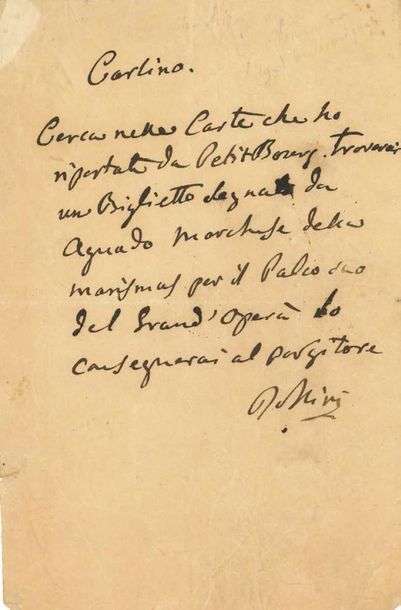 Carlino.
Cerca nelle Carte che ho
riportate da Petit Bourg. troverai
un Biglietto segnato da
Aguado Marchese della
marismas per il Palco suo
del Grand' Opera lo
consegnerai al porgitore
Rossini